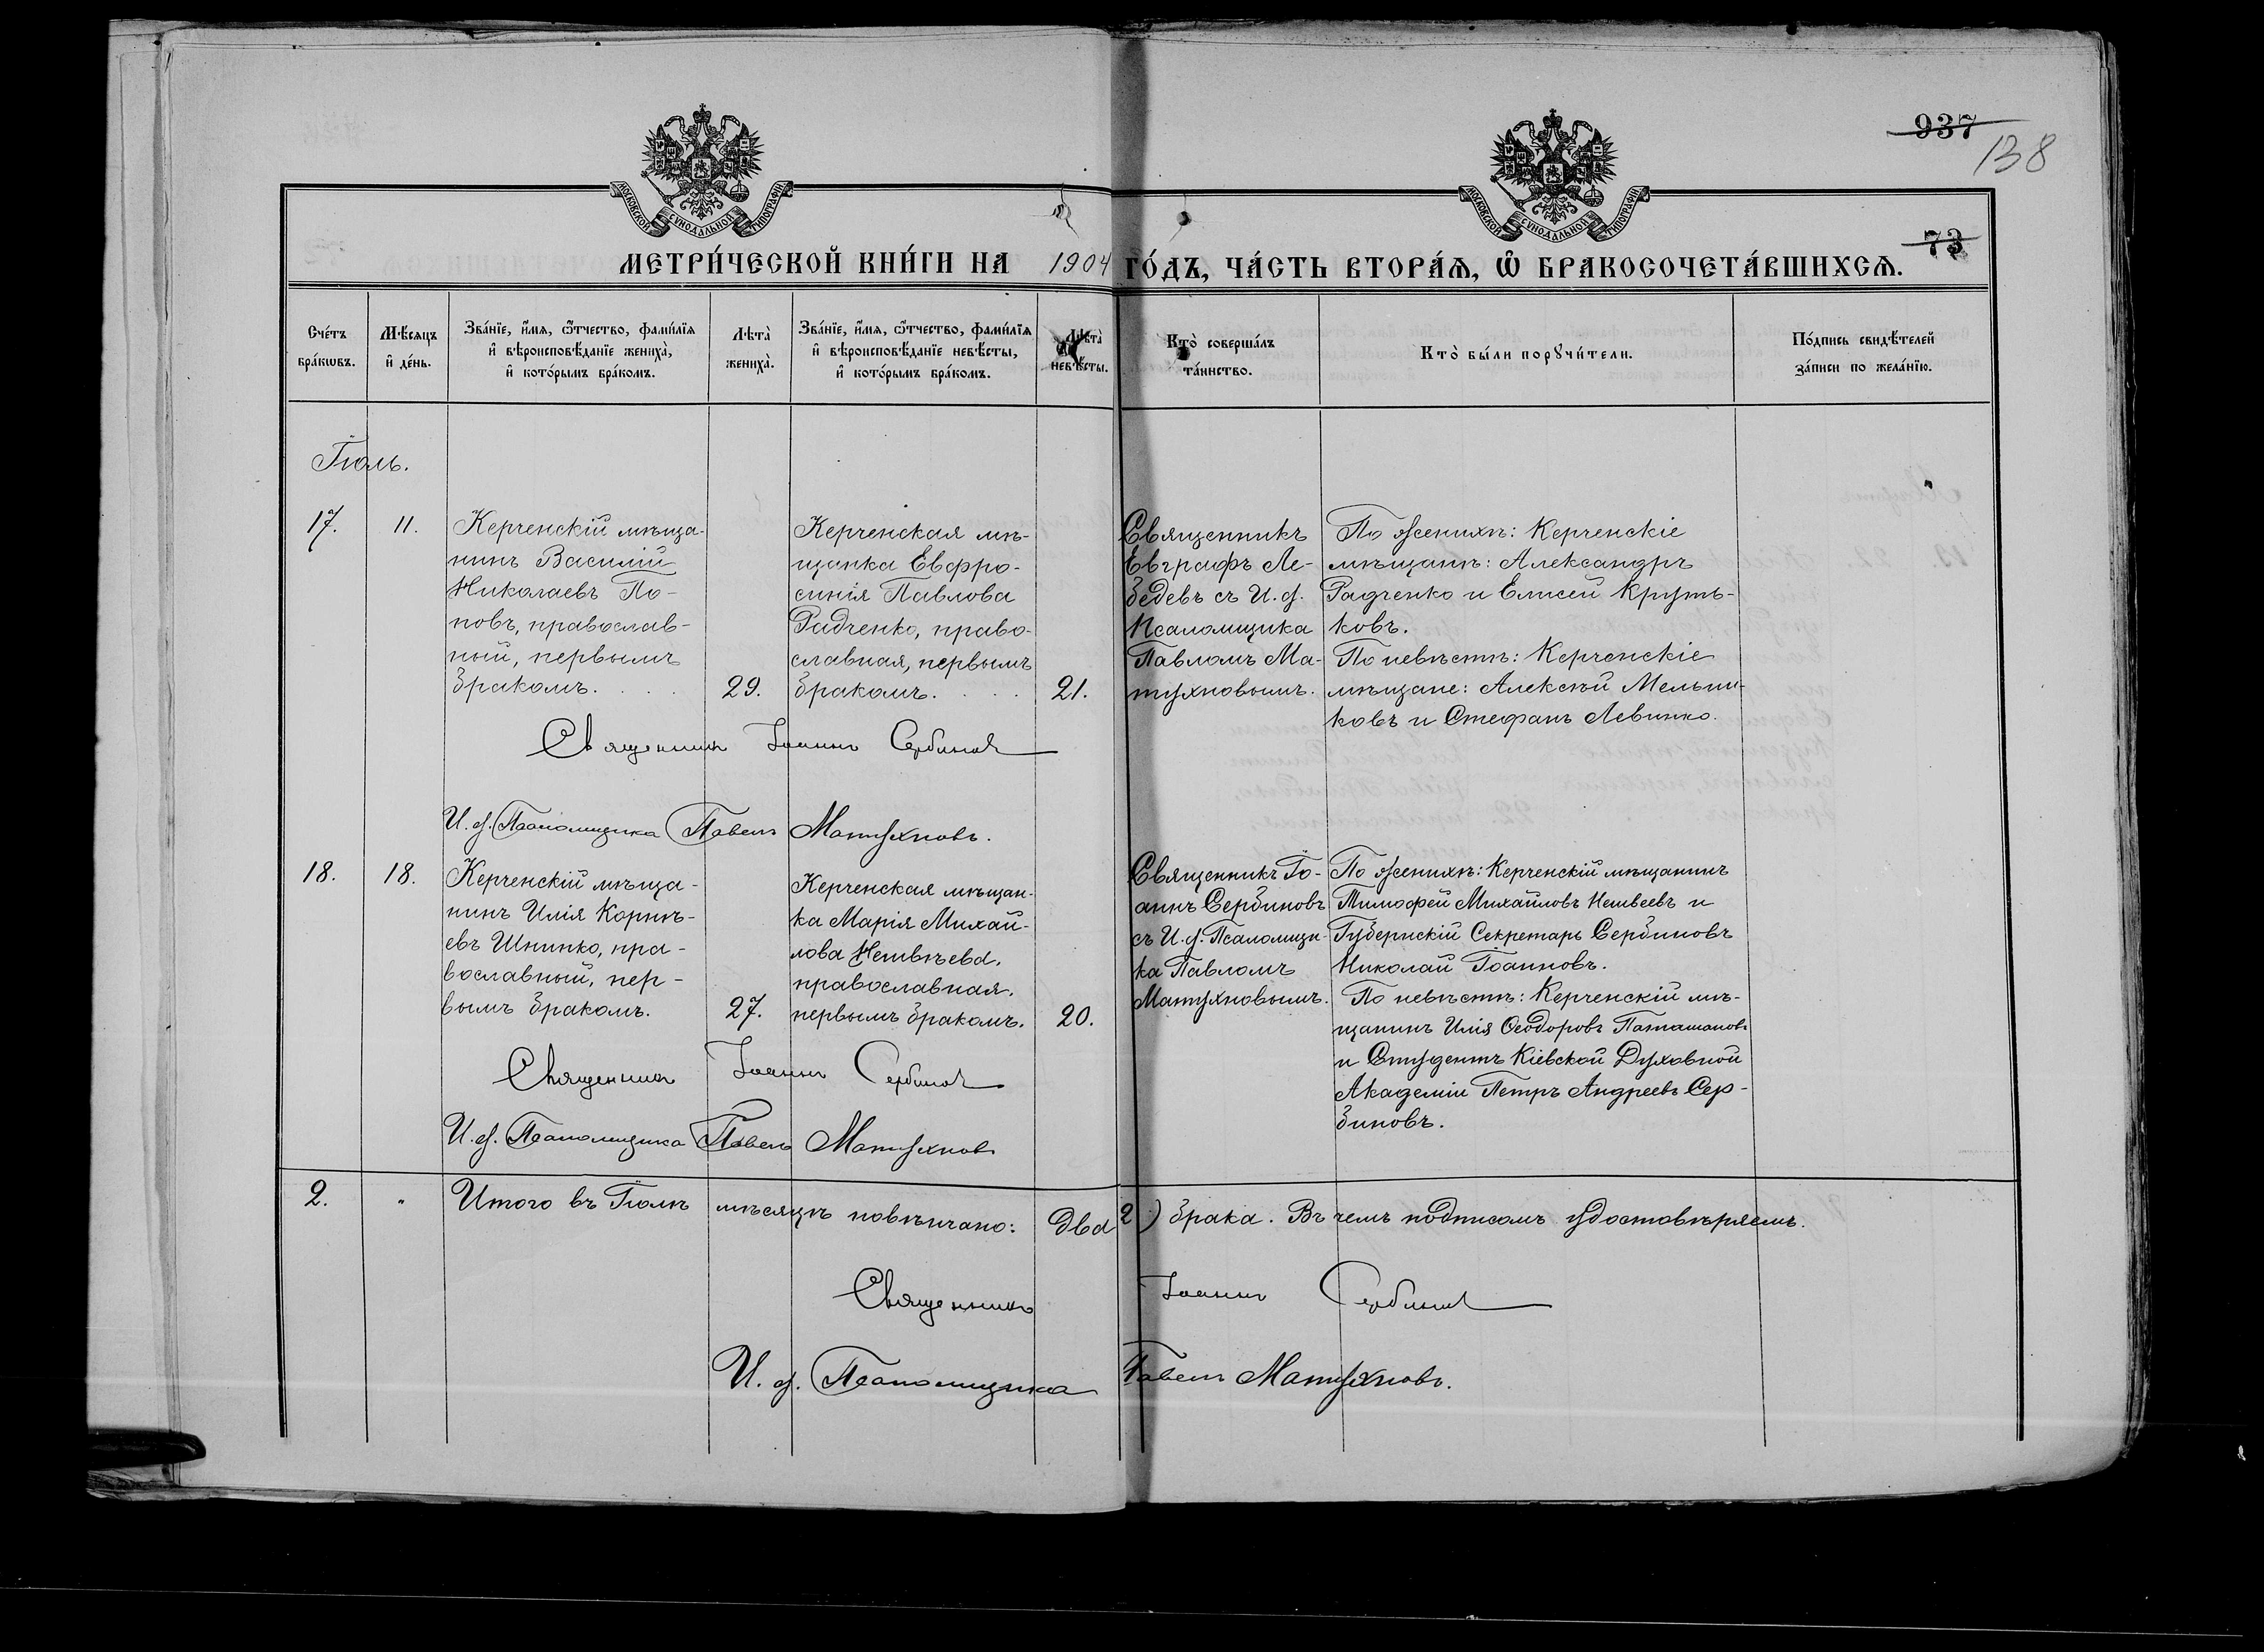 937
138
МОСКОВСКОЙ СѴНОДАЛЬНОЙ ТИПОГРАФІИ
МОСКОВСКОЙ СѴНОДАЛЬНОЙ ТИПОГРАФІИ
73
МЕТРИ́ЧЕСКОЙ КНИ́ГИ НА 1904 ГО́ДЪ, ЧА́СТЬ ВТОРА́Ѧ, Ѽ БРАКОСОЧЕТА́ВШИХСѦ.
Сче́тъ
бра́кѡвъ.
Мѣ́сѧцъ
и҆ де́нь.
Зва́нїе, и҆́мѧ, ѻ҆́тчество, фами́лїѧ
и҆ вѣроисповѣ́данїе жениха̀,
и҆ кото́рымъ бра́комъ.
Лѣта̀
жениха̀.
Зва́нїе, и҆́мѧ, ѻ҆́тчество, фами́лїѧ
и҆ вѣроисповѣ́данїе невѣ́сты,
и҆ кото́рымъ бра́комъ.
Лѣта̀
невѣ́сты.
Кто̀ соверша́лъ
та́инство.
Кто̀ бы́ли порꙋчи́тели.
По́дпись свидѣ́телей
за́писи по жела́нїю.
Іюль.
17.
11.
Керченскій мѣща-
нинъ Василій
Николаевъ По-
повъ, православ-
ный, первымъ
бракомъ. . . .
29.
Керченская мѣ-
щанка Евфро-
синія Павлова
Радченко, право-
славная, первымъ
бракомъ. . . .
21.
Священникъ
Евграфъ Ле-
бедевъ съ И. д.
Псаломщика
Павломъ Ма-
тухновымъ.
По женихѣ: Керченскіе
мѣщане: Александръ
Радченко и Елисей Круть-
ковъ.
По невѣстѣ: Керченскіе
мѣщане: Алексѣй Мельни-
ковъ и Стефанъ Левинко.
Священникъ Іоаннъ Сербиновъ
И. д. Псаломщика Павелъ Матухновъ.
18.
18.
Керченскій мѣща-
нинъ Илія Корнѣ-
евъ Шнинко, пра-
вославный, пер-
вымъ бракомъ.
27.
Керченская мѣщан-
ка Марія Михай-
лова
православная,
первымъ бракомъ.
20.
Священникъ Іо-
аннъ Сербиновъ
съ И. д. Псаломщи-
ка Павломъ
Матухновымъ.
По женихѣ: Керченскій мѣщанинъ
Тимофей Михайловъ и
Губернскій Секретарь Сербиновъ
Николай Іоанновъ.
По невѣстѣ: Керченскій мѣ-
щанинъ Илія Ѳеодоровъ
и Студентъ Кіевской Духовной
Академіи Петръ Андреевъ Сер-
биновъ.
Священникъ Іоаннъ Сербиновъ
И. д. Псаломщика Павелъ Матухновъ
2.
"
Итого въ Іюлѣ мѣсяцѣ повѣнчано: два 2) брака. Въ чемъ подписомъ удостовѣряемъ.
Священникъ Іоаннъ Сербиновъ
И. д. Псаломщика Павелъ Матухновъ.